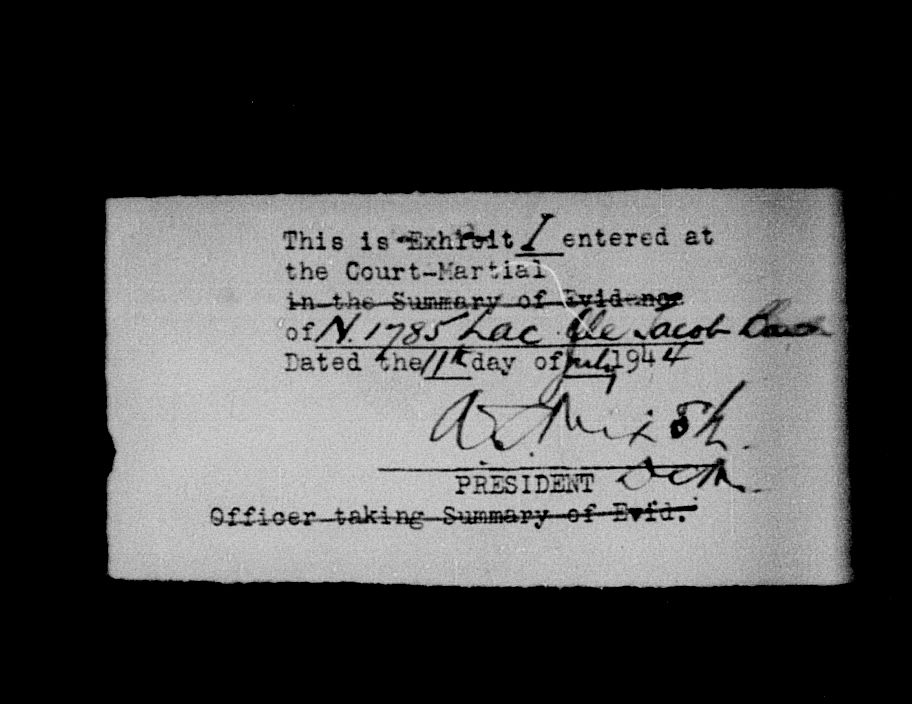 This is Exhibit I entered at
the Court-Martial
in the Summary of Evidence
of N. 1785 Lac. Jacob
Dated the 11th day of July 1944
PRESIDENT
Officer taking Summary of Evid.